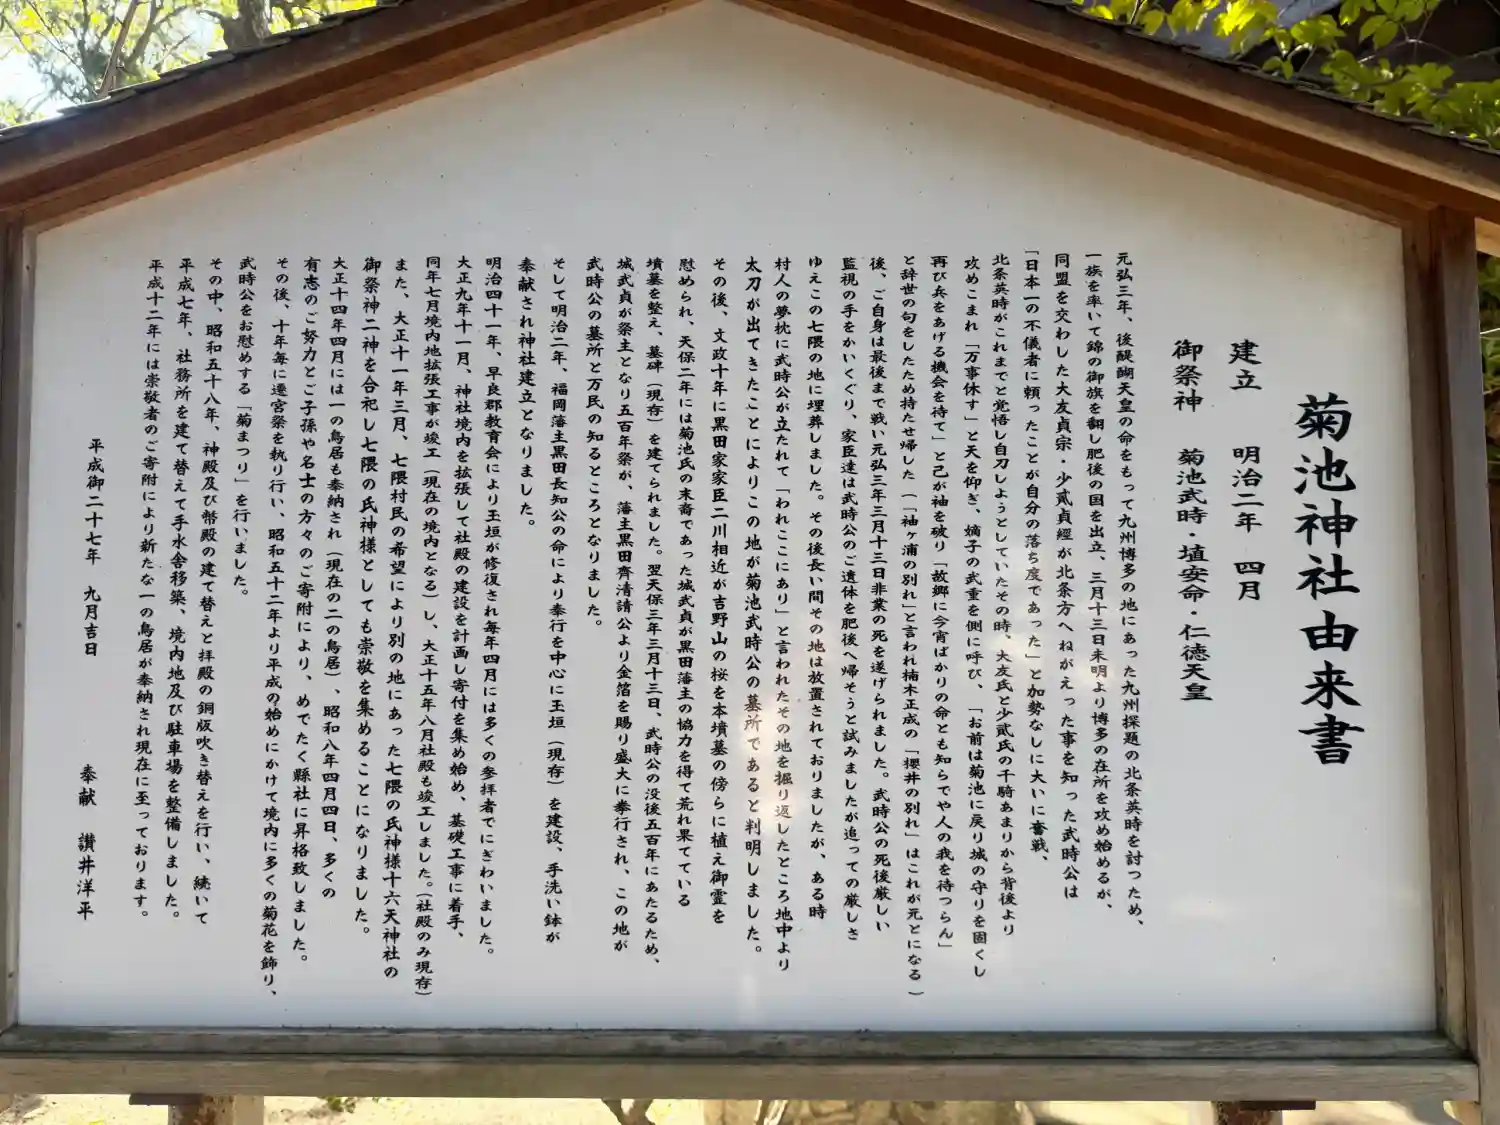 菊池神社由来書
建立　明治二年　四月
御祭神　菊池武時・埴安命・仁徳天皇
元弘三年、後醍醐天皇の命をもって九州博多の地にあった九州探題の北条英時を討つため、
一族を率いて錦の御旗を翻し肥後の国を出立、三月十三日未明より博多の在所を攻め始めるが、
同盟を交わした大友貞宗・少貳貞經が北条方へねがえった事を知った武時公は
「日本一の不儀者に頼ったことが自分の落ち度であった」と加勢なしに大いに奮戦、
北条英時がこれまでと覚悟し自刀しようとしていたその時、大友氏と少貳氏の千騎あまりから背後より
攻めこまれ「万事休す」と天を仰ぎ、嫡子の武重を側に呼び、「お前は菊池に戻り城の守りを固くし
再び兵をあげる機会を待て」と己が袖を破り「故郷に今宵ばかりの命とも知らでや人の我を待つらん」
と辞世の句をしたため持たせ帰した（「袖ヶ浦の別れ」と言われ楠木正成の「櫻井の別れ」はこれが元とになる）
後、ご自身は最後まで戦い元弘三年三月十三日非業の死を遂げられました。武時公の死後厳しい
監視の手をかいくぐり、家臣達は武時公のご遺体を肥後へ帰そうと試みましたが追っての厳しさ
ゆえこの七隈の地に埋葬しました。その後長い間その地は放置されておりましたが、ある時
村人の夢枕に武時公が立たれて「われここにあり」と言われたその地を掘り返したところ地中より
太刀が出てきたことによりこの地が菊池武時公の墓所であると判明しました。
その後、文政十年に黒田家家臣二川相近が吉野山の桜を本墳墓の傍らに植え御霊を
慰められ、天保二年には菊池氏の末裔であった城武貞が黒田藩主の協力を得て荒れ果てている
墳墓を整え、墓碑（現存）を建てられました。翌天保三年三月十三日、武時公の没後五百年にあたるため、
城武貞が祭主となり五百年祭が、藩主黒田齊清請公より金箔を賜り盛大に挙行され、この地が
武時公の墓所と万民の知るところとなりました。
そして明治二年、福岡藩主黒田長知公の命により奉行を中心に玉垣（現存）を建設、手洗い鉢が
奉献され神社建立となりました。
明治四十一年、早良郡教育会により玉垣が修復され毎年四月には多くの参拝者でにぎわいました。
大正九年十一月、神社境内を拡張して社殿の建設を計画し寄付を集め始め、基礎工事に着手、
同年七月境内地拡張工事が竣工（現在の境内となる）し、大正十五年八月社殿も竣工しました。（社殿のみ現存）
また、大正十一年三月、七隈村民の希望により別の地にあった七隈の氏神様十六天神社の
御祭神二神を合祀し七隈の氏神様としても崇敬を集めることになりました。
大正十四年四月には一の鳥居も奉納され（現在の二の鳥居）、昭和八年四月四日、多くの
有志のご努力とご子孫や名士の方々のご寄附により、めでたく縣社に昇格致しました。
その後、十年毎に遷宮祭を執り行い、昭和五十二年より平成の始めにかけて境内に多くの菊花を飾り、
武時公をお慰めする「菊まつり」を行いました。
その中、昭和五十八年、神殿及び幣殿の建て替えと拝殿の銅版吹き替えを行い、続いて
平成七年、社務所を建て替えて手水舎移築、境内地及び駐車場を整備しました。
平成十二年には崇敬者のご寄附により新たな一の鳥居が奉納され現在に至っております。
平成御二十七年　九月吉日
奉献　讃井洋平